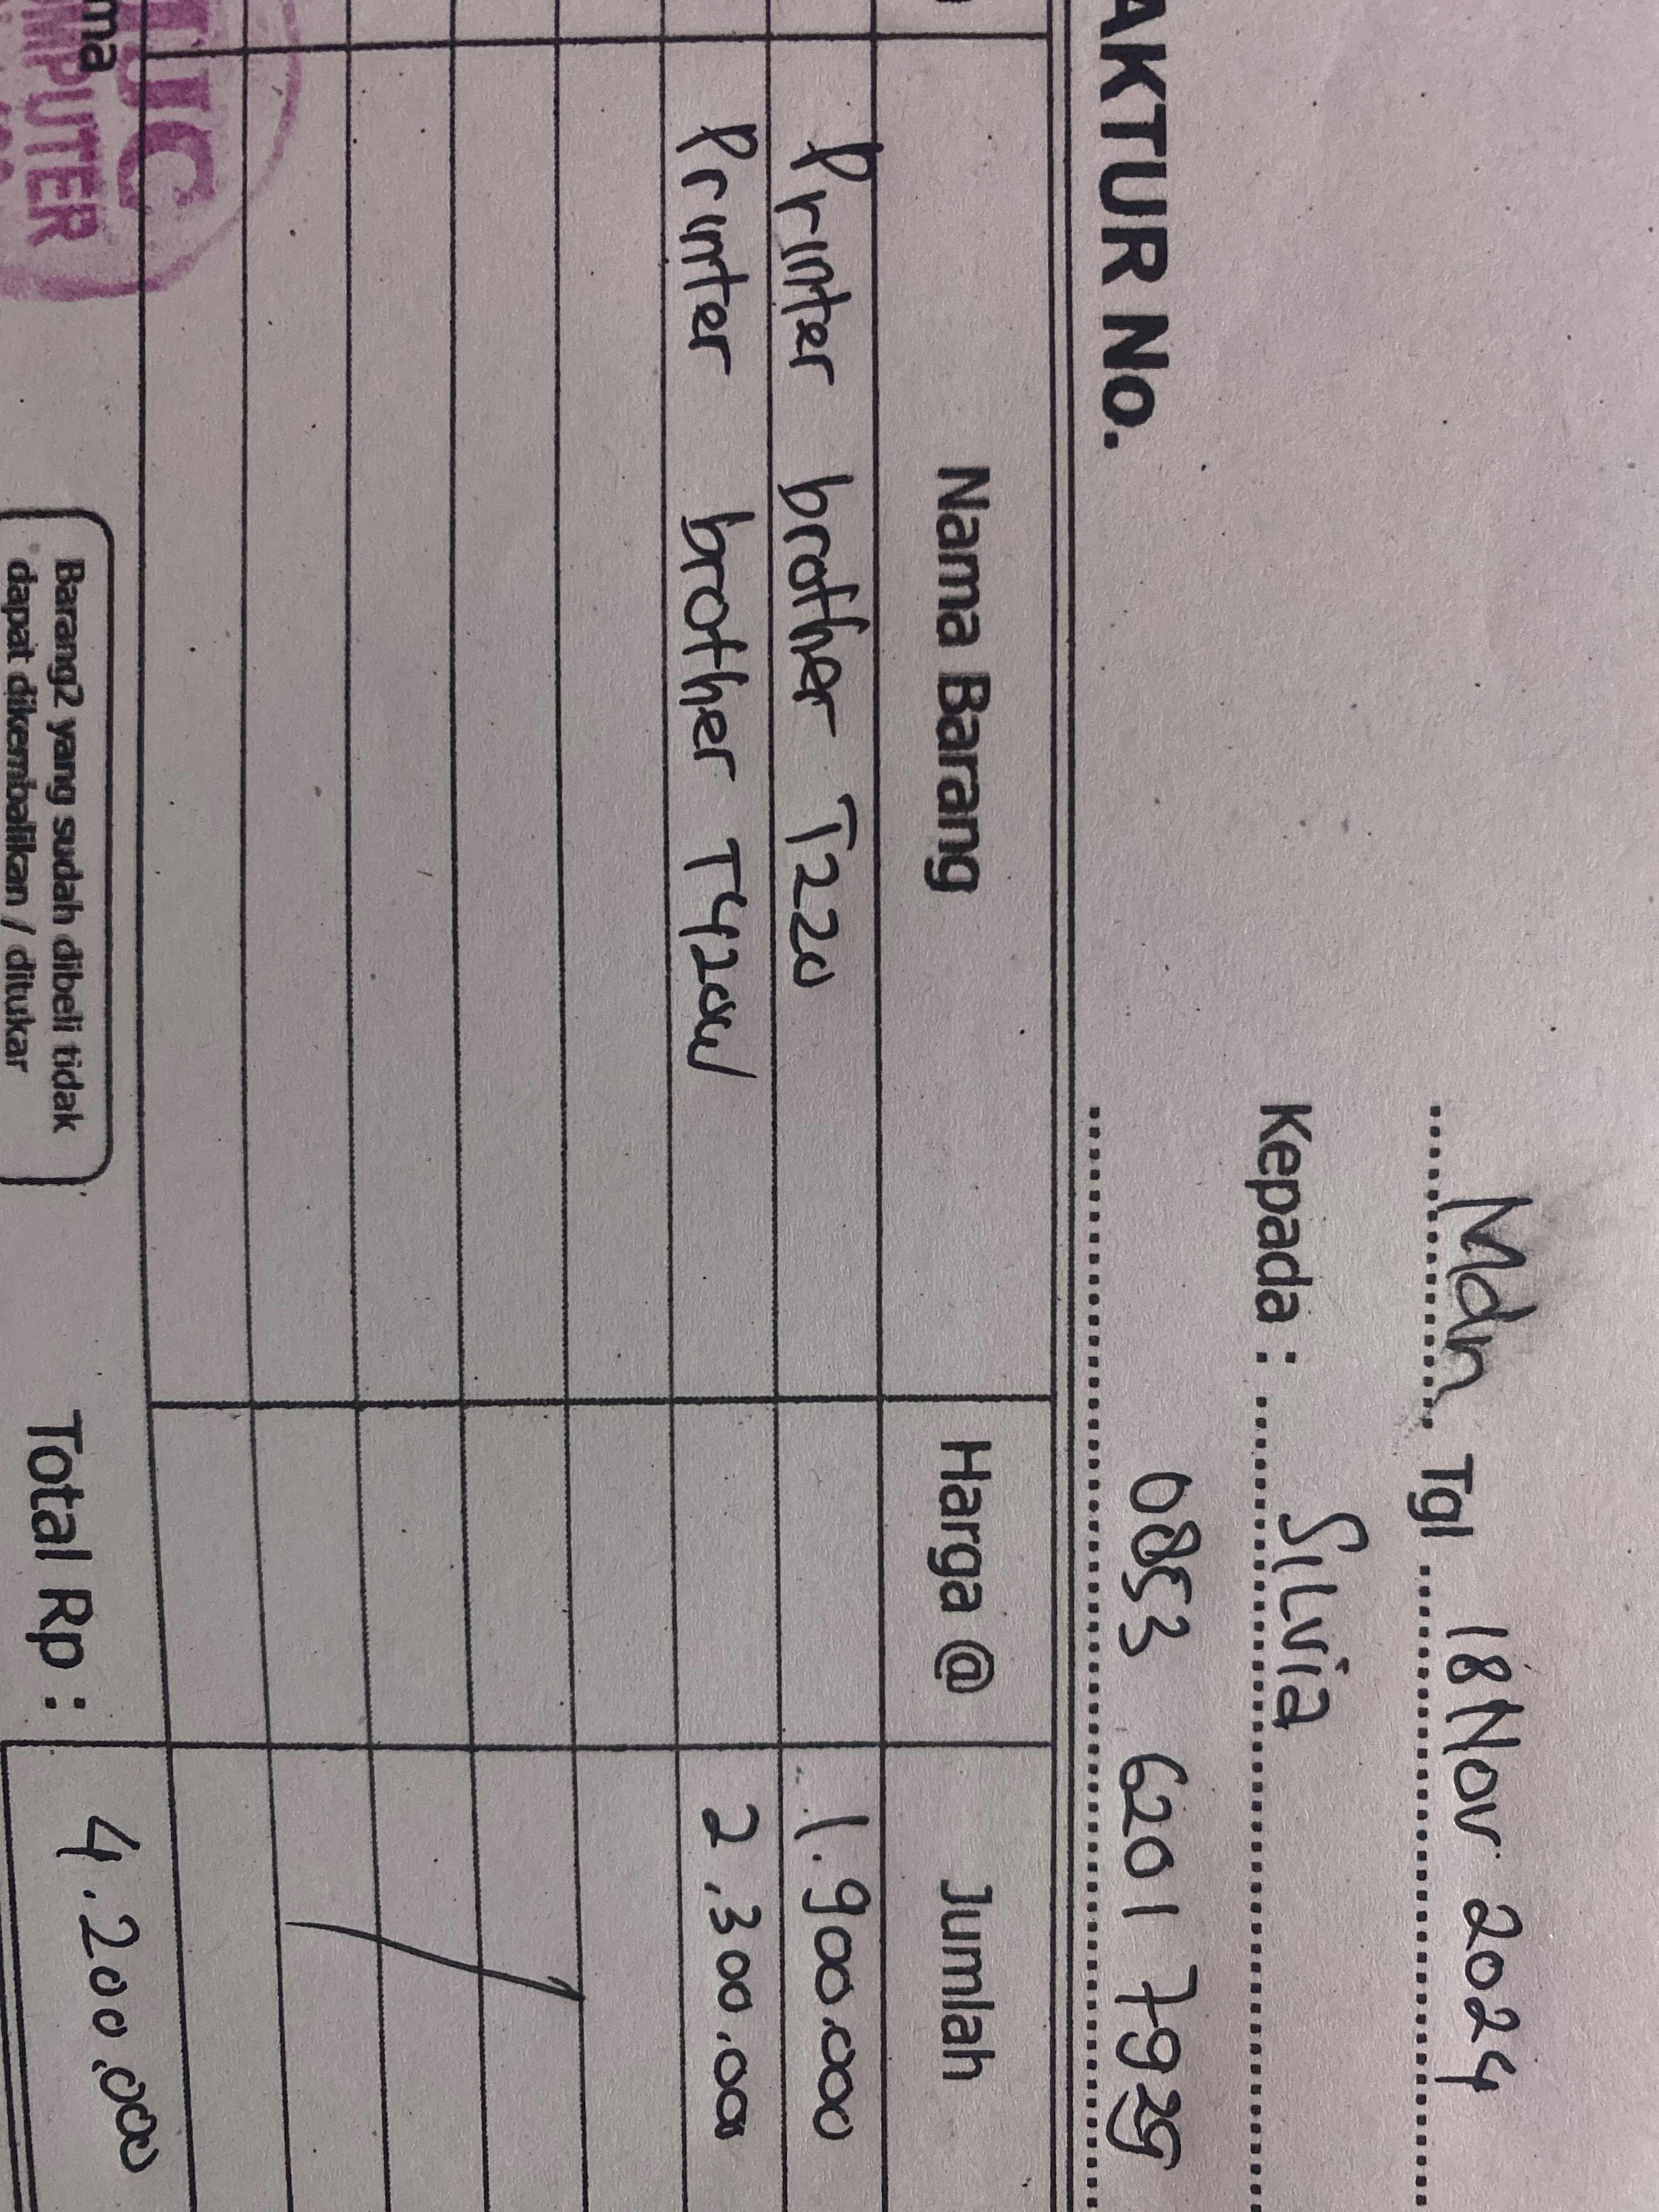 Mdn Tgl 18 Nov 2024
Kepada : Silvia
AKTUR No.
0853 6201 7929
Nama Barang Harga @ Jumlah
Printer brother T220 1.900.000
Printer brother T420W 2.300.000
Total Rp : 4.200.000
Barang2 yang sudah dibeli tidak
dapat dikembalikan / ditukar
ma